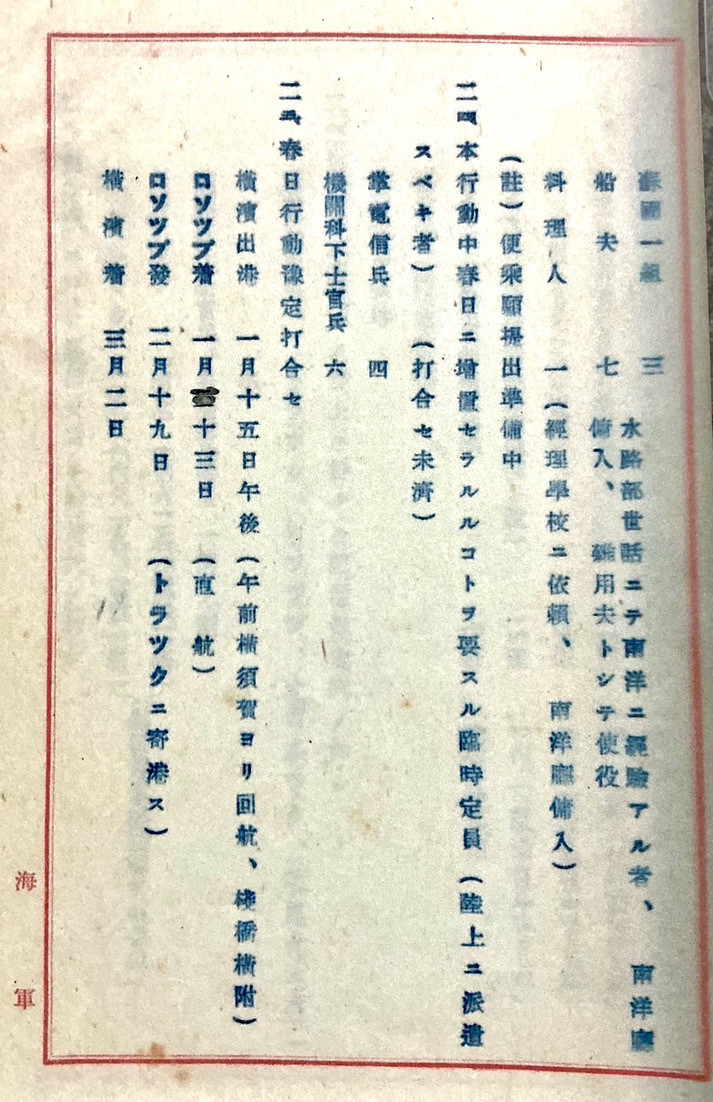 蘇國一組　三
船夫　七　水路部世話ニテ南洋ニ經驗アル者、南洋廳
傭入、雜用夫トシテ使役
料理人　一（經理學校ニ依頼、南洋廳傭入）
（註）便乘願提出準備中
二四、本行動中春日ニ增置セラルルコトヲ要スル臨時定員（陸上ニ派遣
スベキ者）（打合セ未濟）
掌電信兵　四
機關科下士官兵　六
二五、春日行動豫定打合セ
橫濱出港　一月十五日午後（午前橫須賀ヨリ回航、棧橋橫附）
ロソツプ着　一月二十三日（直航）
ロソツプ發　二月十九日（トラツクニ寄港ス）
橫濱着　三月二日
海軍